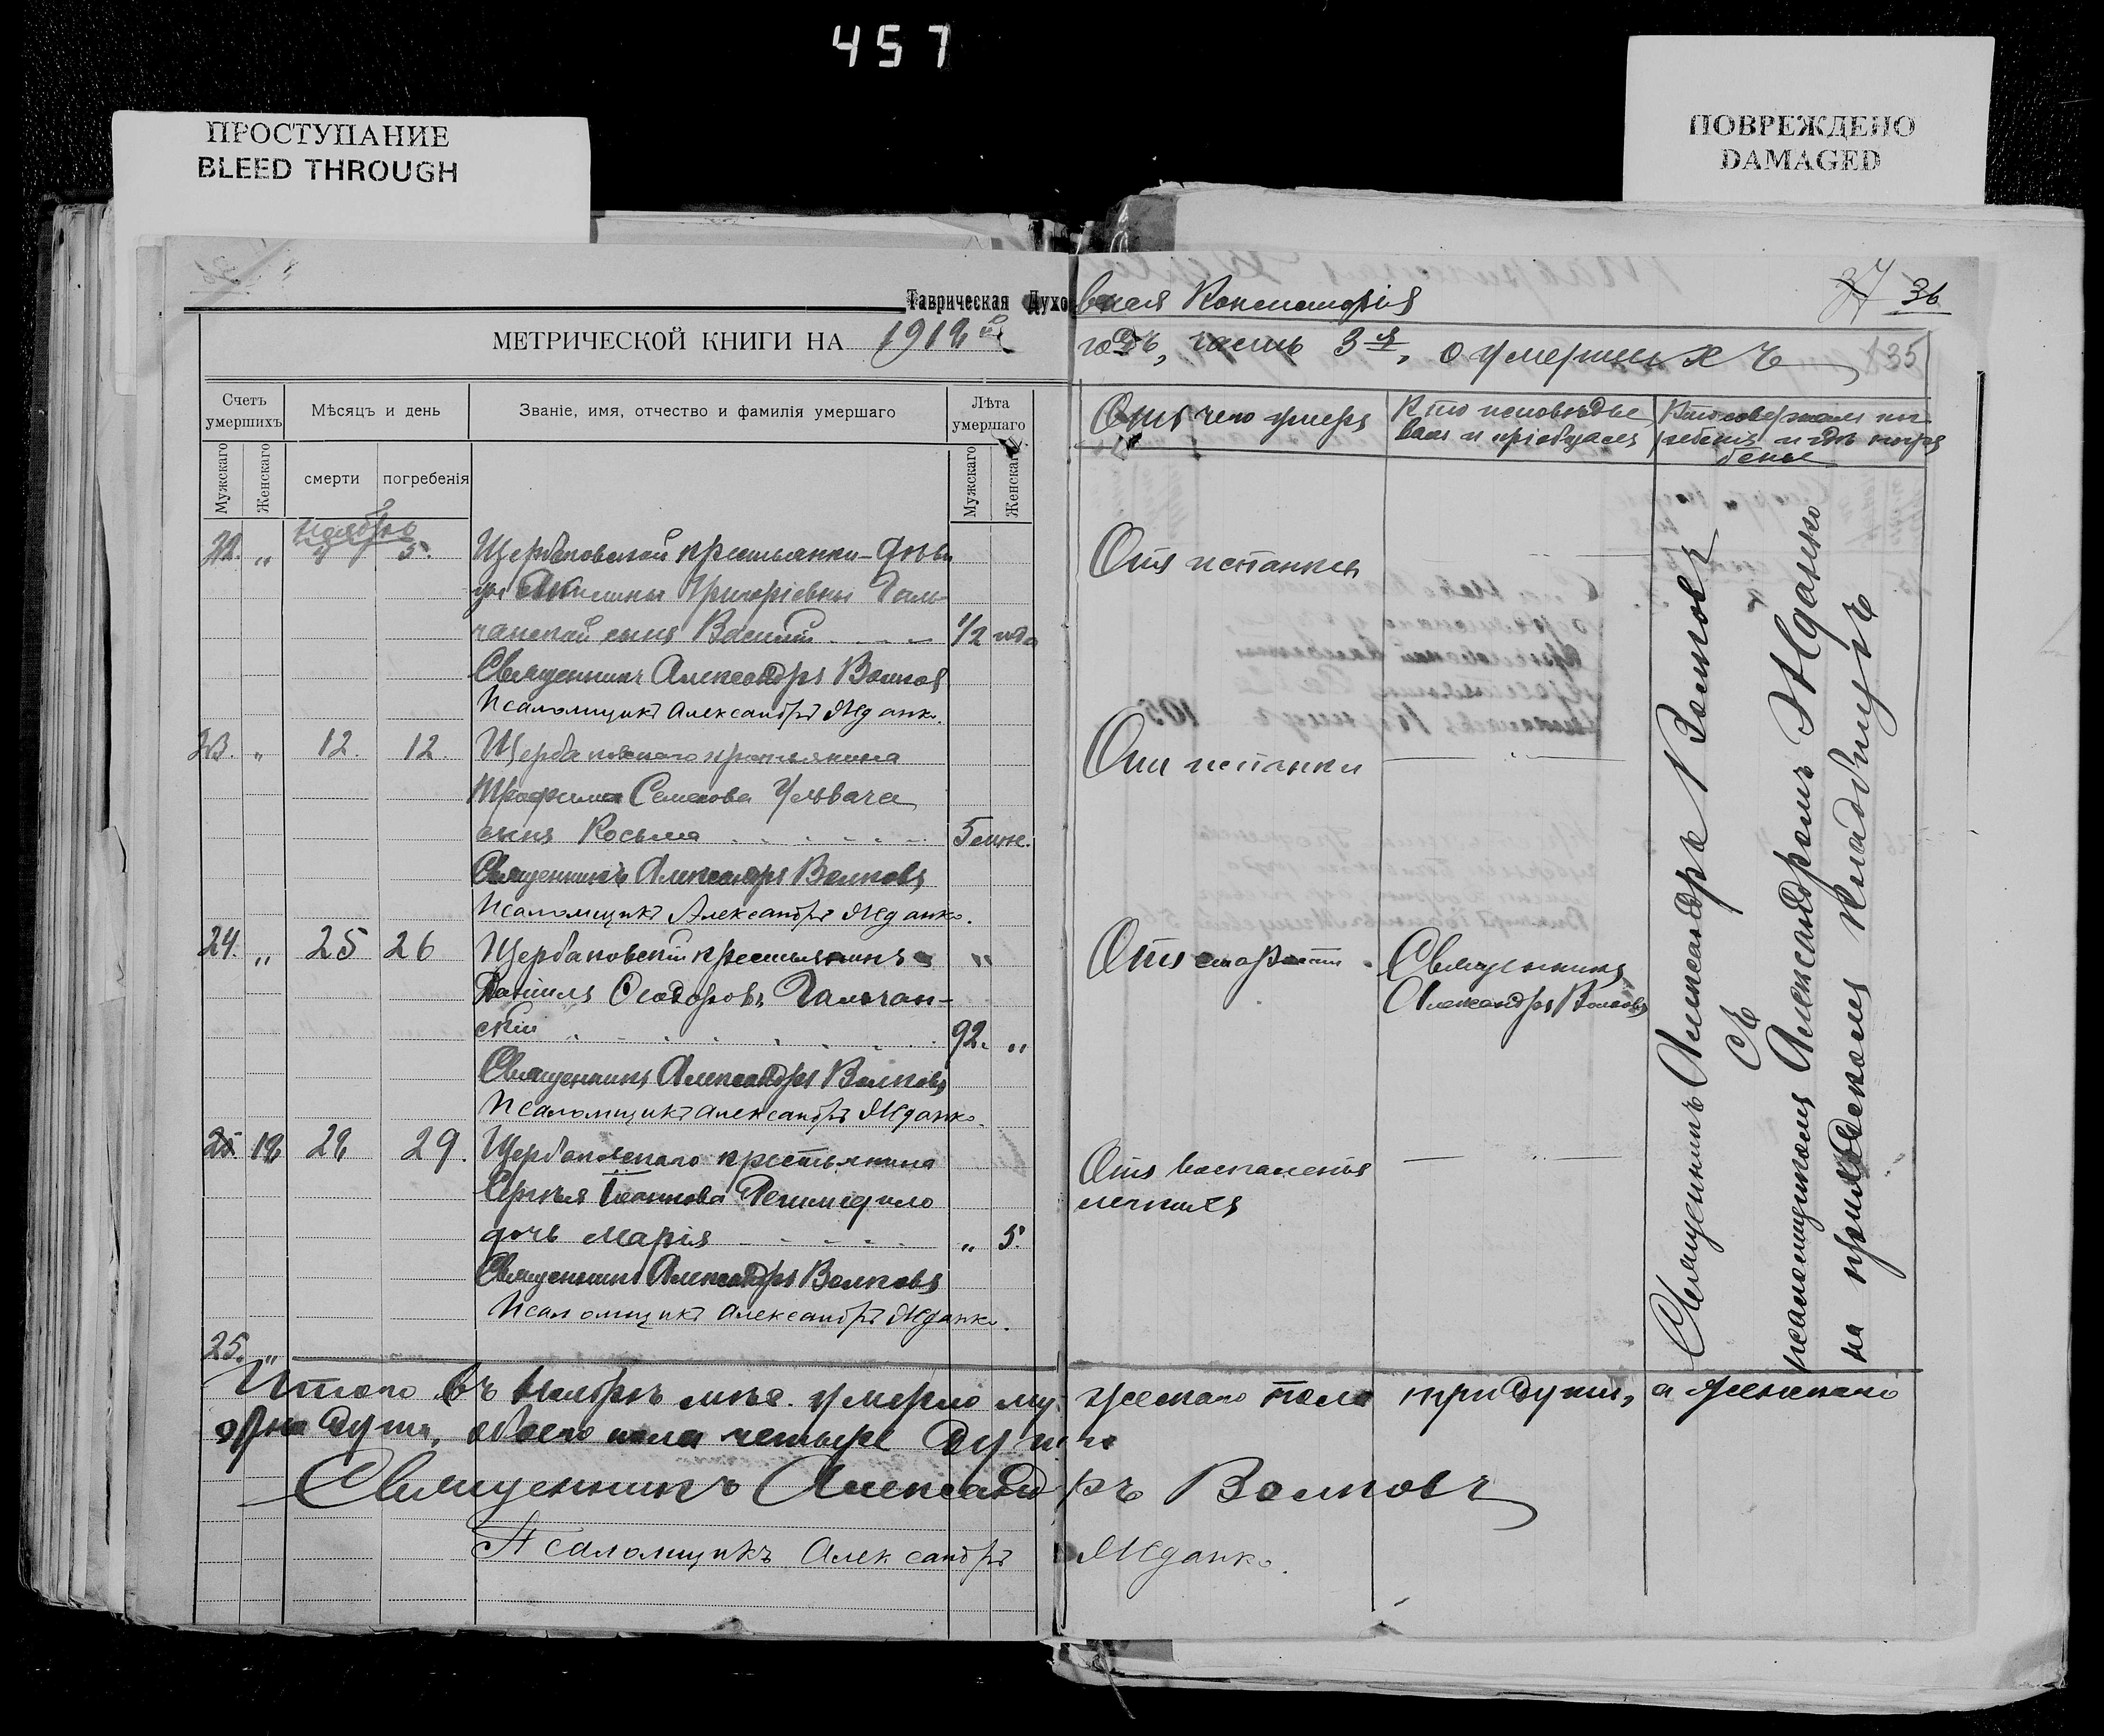 457
ПРОСТУПАНИЕ
BLEED THROUGH
ПОВРЕЖДЕНО
DAMAGED
Таврическая Духовная Консисторія
37 36
МЕТРИЧЕСКОЙ КНИГИ НА 1918й годъ, часть 3я, о умершихъ
135
Счетъ умершихъ
Мѣсяцъ и день
Званіе, имя, отчество и фамилія умершаго
Лѣта умершаго
Отъ чего умеръ
Кто исповѣды
валъ и пріобщалъ
Кто совершалъ по
гребеніе и гдѣ погре
бены
Мужскаго
Женскаго
смерти
погребенія
Мужскаго
Женскаго
Ноябрь
22. " 4 5. Щербановской крестьянки-дѣви
цы Григоріевны Галь-
чанской сынъ Василій 1/2 года
Отъ испанки
Священникъ Александръ Волковъ
Псаломщикъ Александръ Жданко.
23. " 12. 12. Щербановскаго крестьянина
Трофима Семенова
сынъ Косьма 5 мѣс.
Отъ испанки
Священникъ Александръ Волковъ
Псаломщикъ Александръ Жданко.
24. " 25 26 Щербановскій крестьянинъ "
Даніилъ Ѳеодоровъ Гальчан-
скій 92. "
Отъ старости
Священникъ
Александръ Волковъ
Священникъ Александръ Волковъ
Псаломщикъ Александръ Жданко.
25 18 28 29. Щербановскаго крестьянина
Сергѣя Іоаннова
дочь Марія " 5.
Отъ воспаленія
легкихъ
Священникъ Александръ Волковъ
Псаломщикъ Александръ Жданко.
Священникъ Александръ Волковъ
съ
псаломщикомъ Александромъ Жданко
на приходскомъ кладбищѣ
25. "
Итого въ Ноябрѣ мѣс. умерло мужескаго пола три души, а женскаго
одна душа, обоего пола четыре души
Священникъ Александръ Волковъ
Псаломщикъ Александръ Жданко.